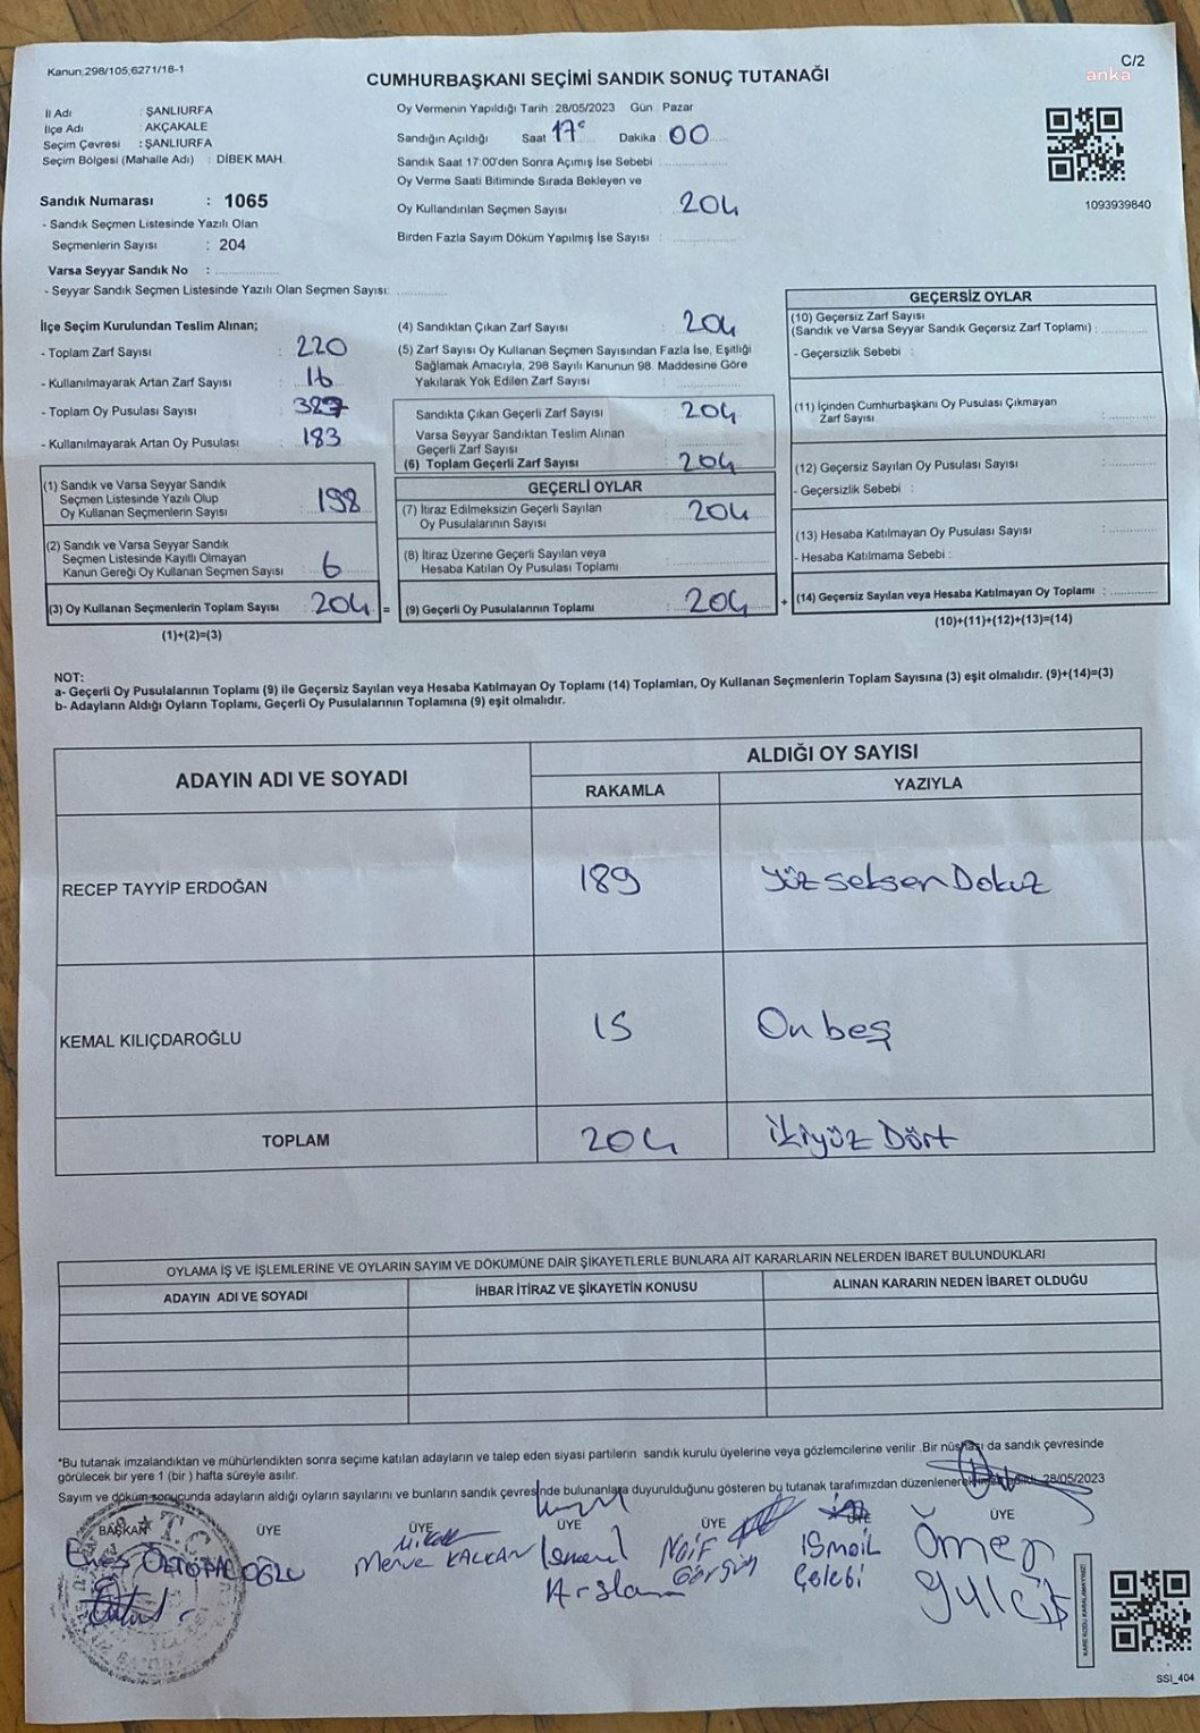 Kanun:298/105,6271/16-1
C/2
anka
CUMHURBAŞKANI SEÇİMİ SANDIK SONUÇ TUTANAĞI
İl Adı : ŞANLIURFA
İlçe Adı : AKÇAKALE
Seçim Çevresi : ŞANLIURFA
Seçim Bölgesi (Mahalle Adı) : DİBEK MAH.
Sandık Numarası : 1065
- Sandık Seçmen Listesinde Yazılı Olan
Seçmenlerin Sayısı : 204
Varsa Seyyar Sandık No :
- Seyyar Sandık Seçmen Listesinde Yazılı Olan Seçmen Sayısı:
Oy Vermenin Yapıldığı Tarih :28/05/2023 Gün : Pazar
Sandığın Açıldığı Saat 17 Dakika : 00
Sandık Saat 17:00'den Sonra Açımış İse Sebebi :
Oy Verme Saati Bitiminde Sırada Bekleyen ve
Oy Kullandırılan Seçmen Sayısı : 204
Birden Fazla Sayım Döküm Yapılmış İse Sayısı :
1093939840
İlçe Seçim Kurulundan Teslim Alınan;
- Toplam Zarf Sayısı : 220
- Kullanılmayarak Artan Zarf Sayısı : 16
- Toplam Oy Pusulası Sayısı : 387
- Kullanılmayarak Artan Oy Pusulası : 183
(1) Sandık ve Varsa Seyyar Sandık
Seçmen Listesinde Yazılı Olup
Oy Kullanan Seçmenlerin Sayısı : 198
(2) Sandık ve Varsa Seyyar Sandık
Seçmen Listesinde Kayıtlı Olmayan
Kanun Gereği Oy Kullanan Seçmen Sayısı : 6
(3) Oy Kullanan Seçmenlerin Toplam Sayısı : 204 =
(1)+(2)=(3)
(4) Sandıktan Çıkan Zarf Sayısı : 204
(5) Zarf Sayısı Oy Kullanan Seçmen Sayısından Fazla İse, Eşitliği
Sağlamak Amacıyla, 298 Sayılı Kanunun 98. Maddesine Göre
Yakılarak Yok Edilen Zarf Sayısı :
Sandıkta Çıkan Geçerli Zarf Sayısı : 204
Varsa Seyyar Sandıktan Teslim Alınan
Geçerli Zarf Sayısı :
(6) Toplam Geçerli Zarf Sayısı : 204
GEÇERLİ OYLAR
(7) İtiraz Edilmeksizin Geçerli Sayılan
Oy Pusulalarının Sayısı : 204
(8) İtiraz Üzerine Geçerli Sayılan veya
Hesaba Katılan Oy Pusulası Toplamı :
(9) Geçerli Oy Pusulalarının Toplamı : 204 +
GEÇERSİZ OYLAR
(10) Geçersiz Zarf Sayısı
(Sandık ve Varsa Seyyar Sandık Geçersiz Zarf Toplamı) :
- Geçersizlik Sebebi :
(11) İçinden Cumhurbaşkanı Oy Pusulası Çıkmayan
Zarf Sayısı :
(12) Geçersiz Sayılan Oy Pusulası Sayısı :
- Geçersizlik Sebebi :
(13) Hesaba Katılmayan Oy Pusulası Sayısı :
- Hesaba Katılmama Sebebi :
(14) Geçersiz Sayılan veya Hesaba Katılmayan Oy Toplamı :
(10)+(11)+(12)+(13)=(14)
NOT:
a- Geçerli Oy Pusulalarının Toplamı (9) ile Geçersiz Sayılan veya Hesaba Katılmayan Oy Toplamı (14) Toplamları, Oy Kullanan Seçmenlerin Toplam Sayısına (3) eşit olmalıdır. (9)+(14)=(3)
b- Adayların Aldığı Oyların Toplamı, Geçerli Oy Pusulalarının Toplamına (9) eşit olmalıdır.
ADAYIN ADI VE SOYADI
ALDIĞI OY SAYISI
RAKAMLA YAZIYLA
RECEP TAYYİP ERDOĞAN 189 Yüz seksen Dokuz
KEMAL KILIÇDAROĞLU 15 On beş
TOPLAM 204 İkiyüz Dört
OYLAMA İŞ VE İŞLEMLERİNE VE OYLARIN SAYIM VE DÖKÜMÜNE DAİR ŞİKAYETLERLE BUNLARA AİT KARARLARIN NELERDEN İBARET BULUNDUKLARI
ADAYIN ADI VE SOYADI İHBAR İTİRAZ VE ŞİKAYETİN KONUSU ALINAN KARARIN NEDEN İBARET OLDUĞU
*Bu tutanak imzalandıktan ve mühürlendikten sonra seçime katılan adayların ve talep eden siyasi partilerin sandık kurulu üyelerine veya gözlemcilerine verilir .Bir nüshası da sandık çevresinde
görülecek bir yere 1 (bir ) hafta süreyle asılır.
Sayım ve döküm sonucunda adayların aldığı oyların sayılarını ve bunların sandık çevresinde bulunanlara duyurulduğunu gösteren bu tutanak tarafımızdan düzenlenerek 28/05/2023
BAŞKAN ÜYE ÜYE ÜYE ÜYE ÜYE ÜYE
Enes ÖZTOPALOĞLU
Merve KALKAN
İsmail Arslan
Naif Görgün
İSmail Çelebi
Ömer
T.C.
SSI_404